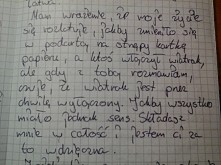 Mam wrażenie, że moje życie
się rozlatuje, jakby zmieniło się
w podartą na strzępy kartkę
papieru, a ktoś włączył wiatrak,
ale gdy z tobą rozmawiam,
czuję, że wiatrak jest przez
chwilę wyłączony. Jakby wszystko
miało jednak sens. Składasz
mnie w całość i jestem ci za
to wdzięczna.